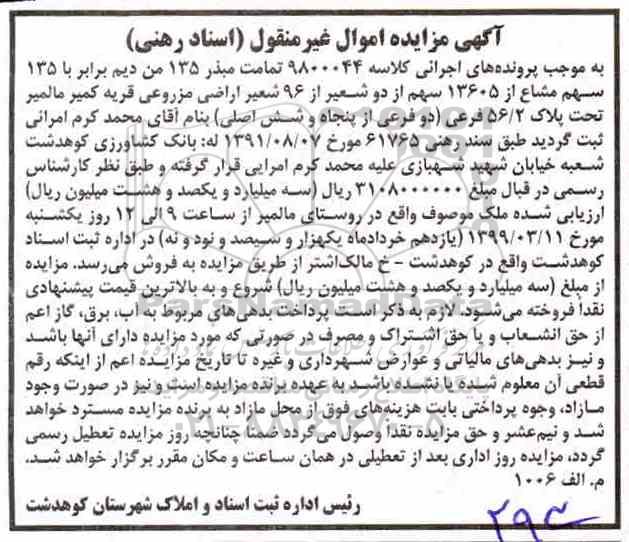 آگهی مزایده اموال غیرمنقول (اسناد رهنی)
به موجب پرونده‌های اجرائی کلاسه ۹۸۰۰۰۴۴ تمامت مبذر ۱۳۵ من دیم برابر با ۱۳۵
سهم مشاع از ۱۳۶۰۵ سهم از دو شعیر از ۹۶ شعیر اراضی مزروعی قریه کمیر مالمیر
تحت پلاک ۵۶/۲ فرعی (دو فرعی از پنجاه و شش اصلی) بنام آقای محمد کرم امرائی
ثبت گردید طبق سند رهنی ۶۱۷۶۵ مورخ ۱۳۹۱/۰۸/۰۷ له: بانک کشاورزی کوهدشت
شعبه خیابان شهید شهبازی علیه محمد کرم امرایی قرار گرفته و طبق نظر کارشناس
رسمی در قبال مبلغ ۳۱۰۸۰۰۰۰۰۰ ریال (سه میلیارد و یکصد و هشت میلیون ریال)
ارزیابی شده ملک موصوف واقع در روستای مالمیر از ساعت ۹ الی ۱۲ روز یکشنبه
مورخ ۱۳۹۹/۰۳/۱۱ (یازدهم خردادماه یکهزار و سیصد و نود و نه) در اداره ثبت اسناد
کوهدشت واقع در کوهدشت - خ مالک‌اشتر از طریق مزایده به فروش می‌رسد. مزایده
از مبلغ (سه میلیارد و یکصد و هشت میلیون ریال) شروع و به بالاترین قیمت پیشنهادی
نقداً فروخته می‌شود. لازم به ذکر است پرداخت بدهی‌های مربوط به آب، برق، گاز اعم
از حق انشعاب و یا حق اشتراک و مصرف در صورتی که مورد مزایده دارای آنها باشد
و نیز بدهی‌های مالیاتی و عوارض شهرداری و غیره تا تاریخ مزایده اعم از اینکه رقم
قطعی آن معلوم شده یا نشده باشد به عهده برنده مزایده است و نیز در صورت وجود
مازاد، وجوه پرداختی بابت هزینه‌های فوق از محل مازاد به برنده مزایده مسترد خواهد
شد و نیم‌عشر و حق مزایده نقداً وصول می‌گردد ضمناً چنانچه روز مزایده تعطیل رسمی
گردد، مزایده روز اداری بعد از تعطیلی در همان ساعت و مکان مقرر برگزار خواهد شد.
م. الف ۱۰۰۶
رئیس اداره ثبت اسناد و املاک شهرستان کوهدشت